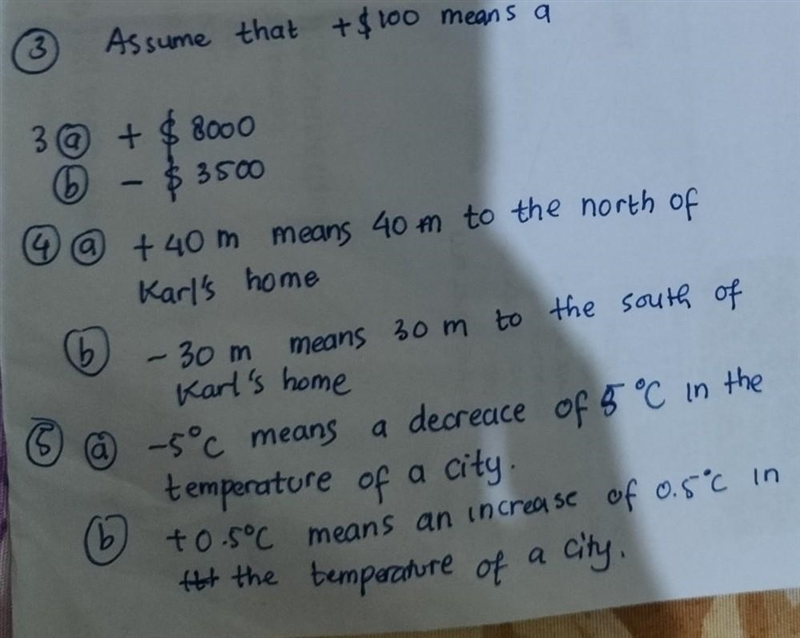 ③ Assume that +$100 means a
3 ⓐ + $ 8000
ⓑ - $ 3500
④ ⓐ +40 m means 40 m to the north of
Karl's home
ⓑ -30 m means 30 m to the south of
Karl's home
⑤ ⓐ -5°C means a decreace of 5°C in the
temperature of a city.
ⓑ +0.5°C means an increase of 0.5°C in
the temperature of a city.